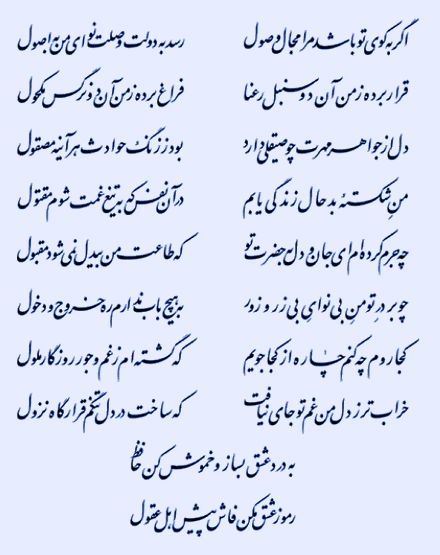 اگر به کوی تو باشد مرا مجال وصول رسد به دولت وصلت نوای من به اصول
قرار برده ز من آن دو سنبل رعنا فراغ برده ز من آن دو نرگس مکحول
دل از جواهر مهرت چو صیقلی دارد بود ز زنگ حوادث هر آینه مصقول
من شکسته بدحال زندگی یابم در آن نفس که به تیغ غمت شوم مقتول
چه جرم کرده‌ام ای جان و دل به حضرت تو که طاعت من بیدل نمی‌شود مقبول
چو بر در تو من بی‌نوای بی زر و زور به هیچ باب ندارم ره خروج و دخول
کجا روم چه کنم چاره از کجا جویم که گشته‌ام ز غم و جور روزگار ملول
خراب‌تر ز دل من غم تو جای نیافت که ساخت در دل تنگم قرارگاه نزول
به درد عشق بساز و خموش کن حافظ
رموز عشق مکن فاش پیش اهل عقول